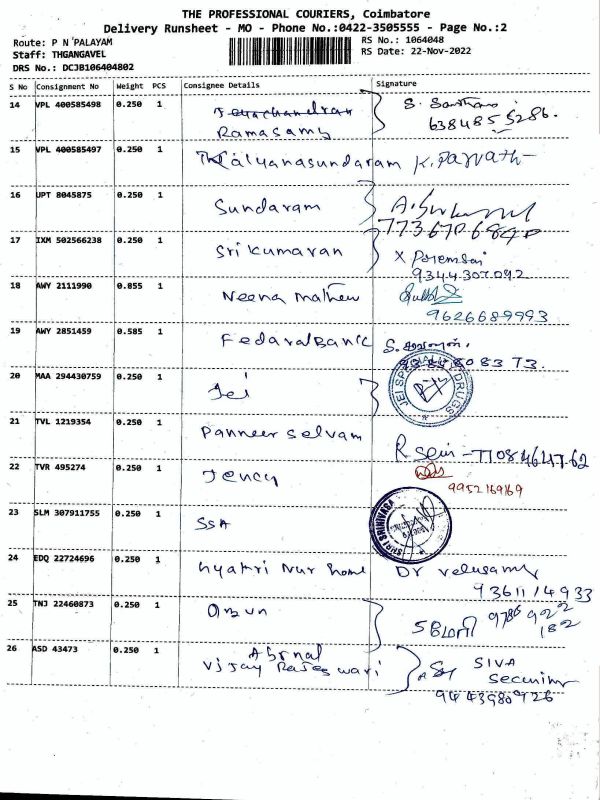 THE PROFESSIONAL COURIERS, Coimbatore
Delivery Runsheet - MO - Phone No.:0422-3505555 - Page No.:2
Route: P N PALAYAM
RS No.: 1064048
Staff: THGANGAVEL
RS Date: 22-Nov-2022
DRS No.: DCJB106404802
S No Consignment No Weight PCS Consignee Details Signature
14 VPL 400585498 0.250 1 Ramasamy
6384855286.
15 VPL 400585497 0.250 1 Kalyanasundaram K. Parvath
16 UPT 8045875 0.250 1 Sundaram
17 IXM 502566238 0.250 1 Sri Kumaran
9344307092
18 AWY 2111990 0.855 1 Neena mathew
9626689993
19 AWY 2851459 0.585 1 Fedaral Bank
20 MAA 294430759 0.250 1 Jei
JEI SPECIALITY DRUGS
21 TVL 1219354 0.250 1 Panneer Selvam
22 TVR 495274 0.250 1 Jency
9952169169
23 SLM 307911755 0.250 1 SSA
SHRI SRINIVASA
24 EDQ 22724696 0.250 1 Nur home Dr Velusamy
9361114933
25 TNJ 22460873 0.250 1 Arun
9786 922
182
26 ASD 43473 0.250 1 Vijay Rajeswari
SIVA
9443980926